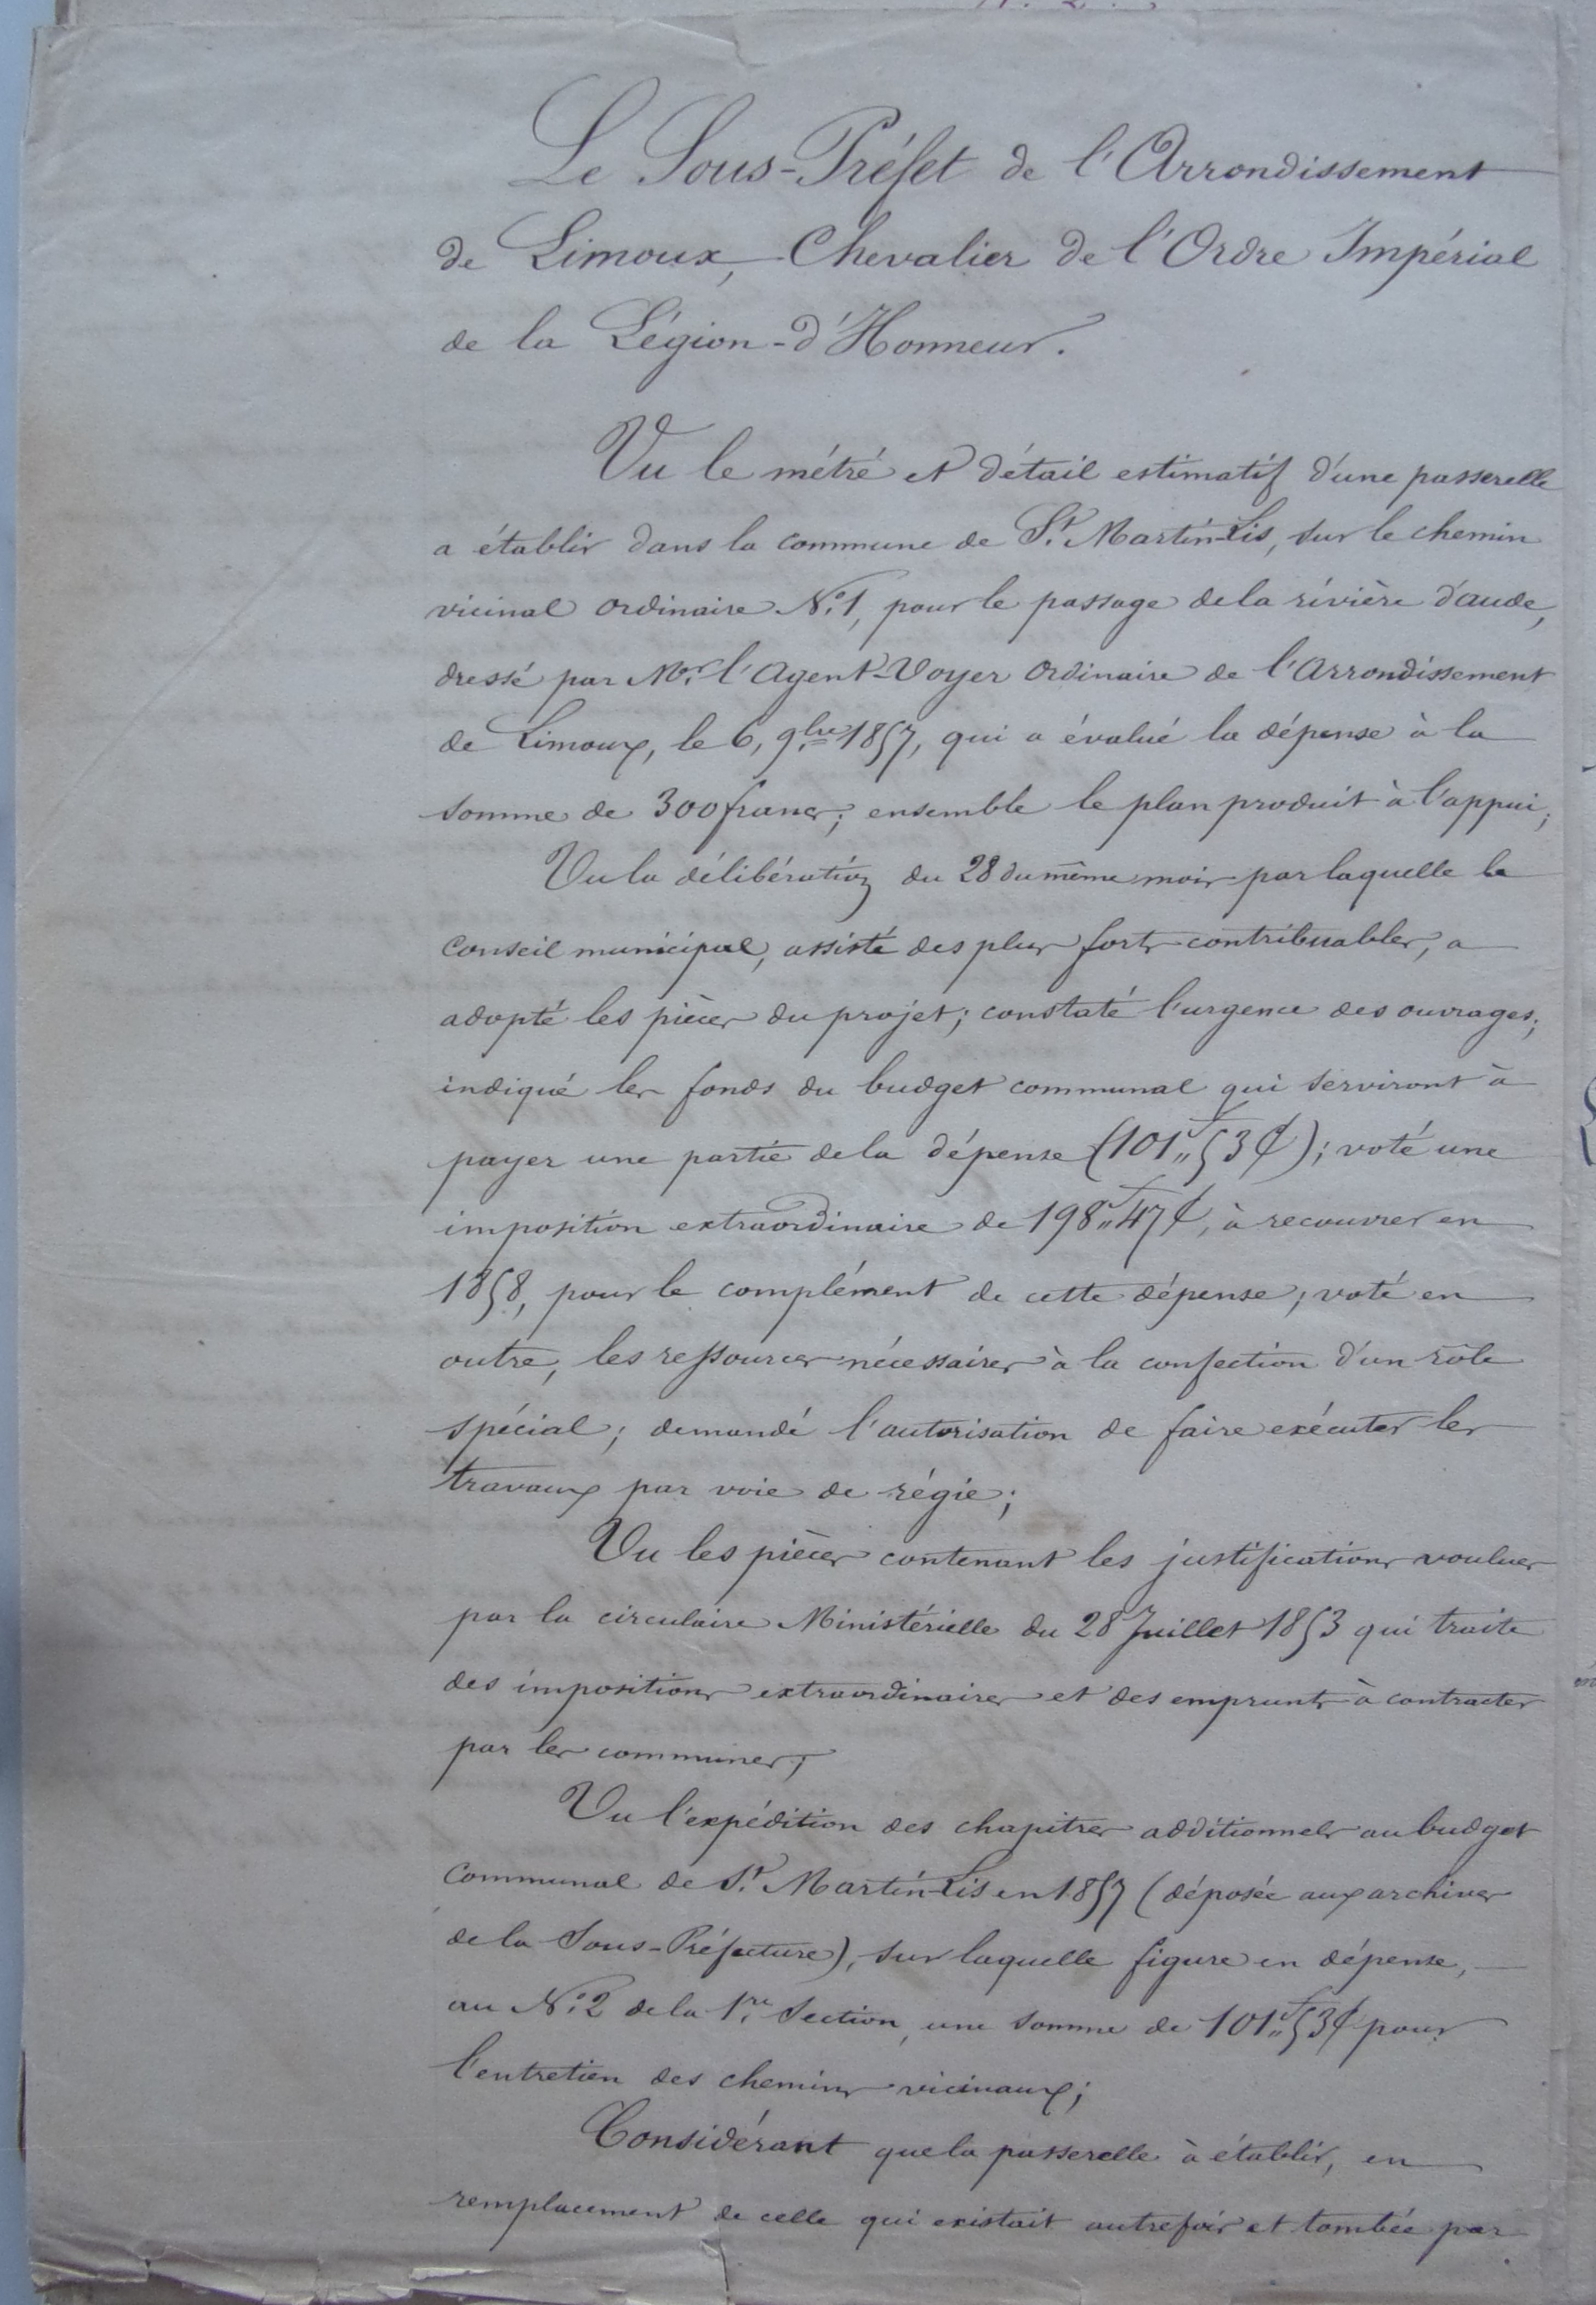 Le Sous-Préfet de l'Arrondissement
de Limoux, Chevalier de l'Ordre Impérial
de la Légion-d'Honneur.
Vu le métré et détail estimatif d'une passerelle
a établir dans la commune de St. Martin-Lis, sur le chemin
vicinal ordinaire N.° 1, pour le passage de la rivière d'aude,
dressé par Mr. l'Agent-Voyer ordinaire de l'arrondissement
de Limoux, le 6, 9bre 1857, qui a évalué la dépense à la
somme de 300 francs; ensemble le plan produit à l'appui;
Vu la délibération du 28 du même mois par laquelle le
conseil municipal, assisté des plus forts contribuables, a
adopté les pièces du projet; constaté l'urgence des ouvrages;
indiqué les fonds du budget communal qui serviront à
payer une partie de la dépense (101f„53c); voté une
imposition extraordinaire de 198f„47c, à recouvrer en
1858, pour le complément de cette dépense; voté en
outre, les ressources nécessaires à la confection d'un rôle
spécial; demandé l'autorisation de faire exécuter les
travaux par voie de régie;
Vu les pièces contenant les justifications voulues
par la circulaire Ministérielle du 28 Juillet 1853 qui traite
des impositions extraordinaires et des emprunts à contracter
par les communes;
Vu l'expédition des chapitres additionnels au budget
communal de St. Martin-Lis en 1857 (déposée aux archives
de la Sous-Préfecture), sur laquelle figure en dépense,
au N.° 2 de la 1re. Section, une somme de 101f„53c pour
l'entretien des chemins vicinaux;
Considérant que la passerelle à établir, en
remplacement de celle qui existait autrefois et tombée par